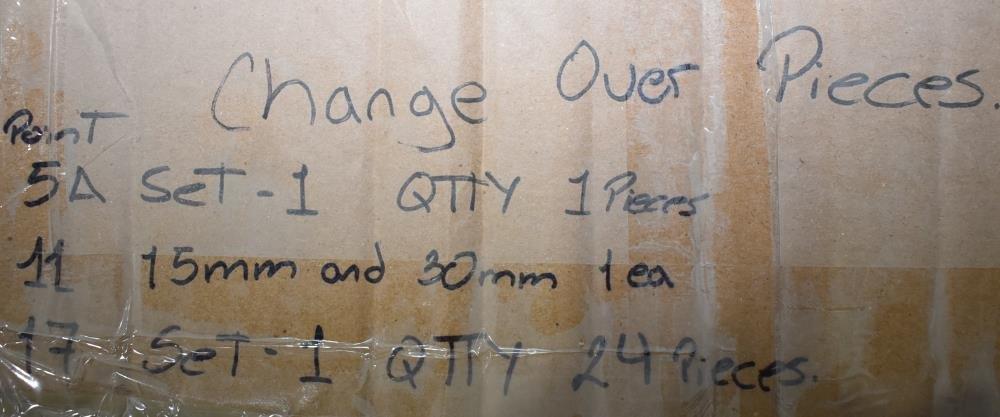 Change Over Pieces.
Point
5A Set-1 QTTY 1 Pieces
11 15mm and 30mm 1 ea
17 Set-1 QTTY 24 Pieces.